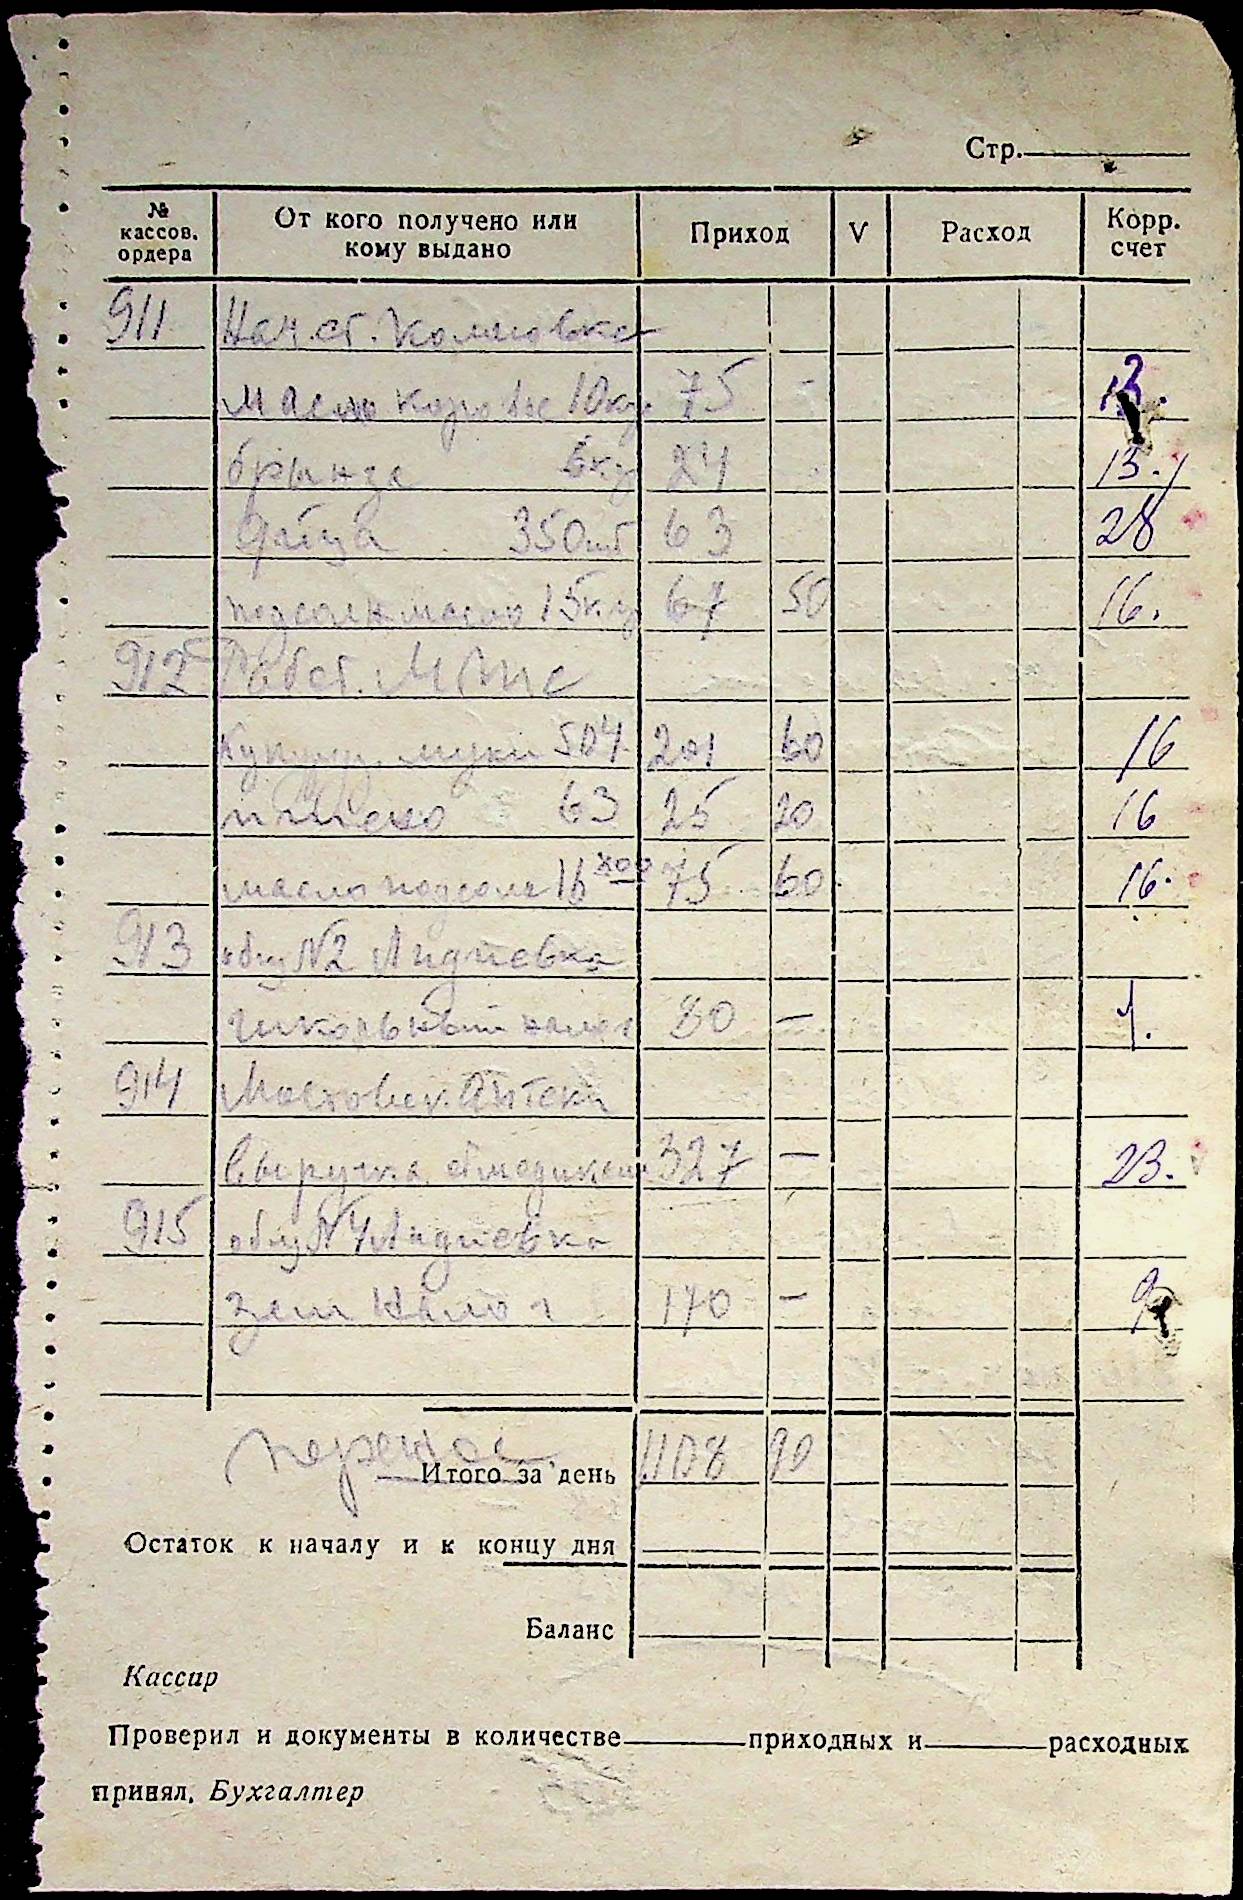 Стр.
№ кассов. ордера От кого получено или кому выдано Приход V Расход Корр. счет
911 Нач. ст.
масло коровье 10кг 75 - 13.
брынза 6кг 24 13.
Яйца 350шт 63 28
подсолн масло 15кг 67 50 16.
912 Раб ст.
Кукур. муки 504 201 60 16
63 25 20 16
масло подсолн 16 800 75 60 16.
913 N2 Лидиевка
налог 80 — 4.
914 Аптеки
Выручка 327 — 23.
915 N4 Лидиевка
Зем налог 170 — 9
перенос
Итого за день 1108 90
Остаток к началу и к концу дня
Баланс
Кассир
Проверил и документы в количестве приходных и расходных
принял. Бухгалтер